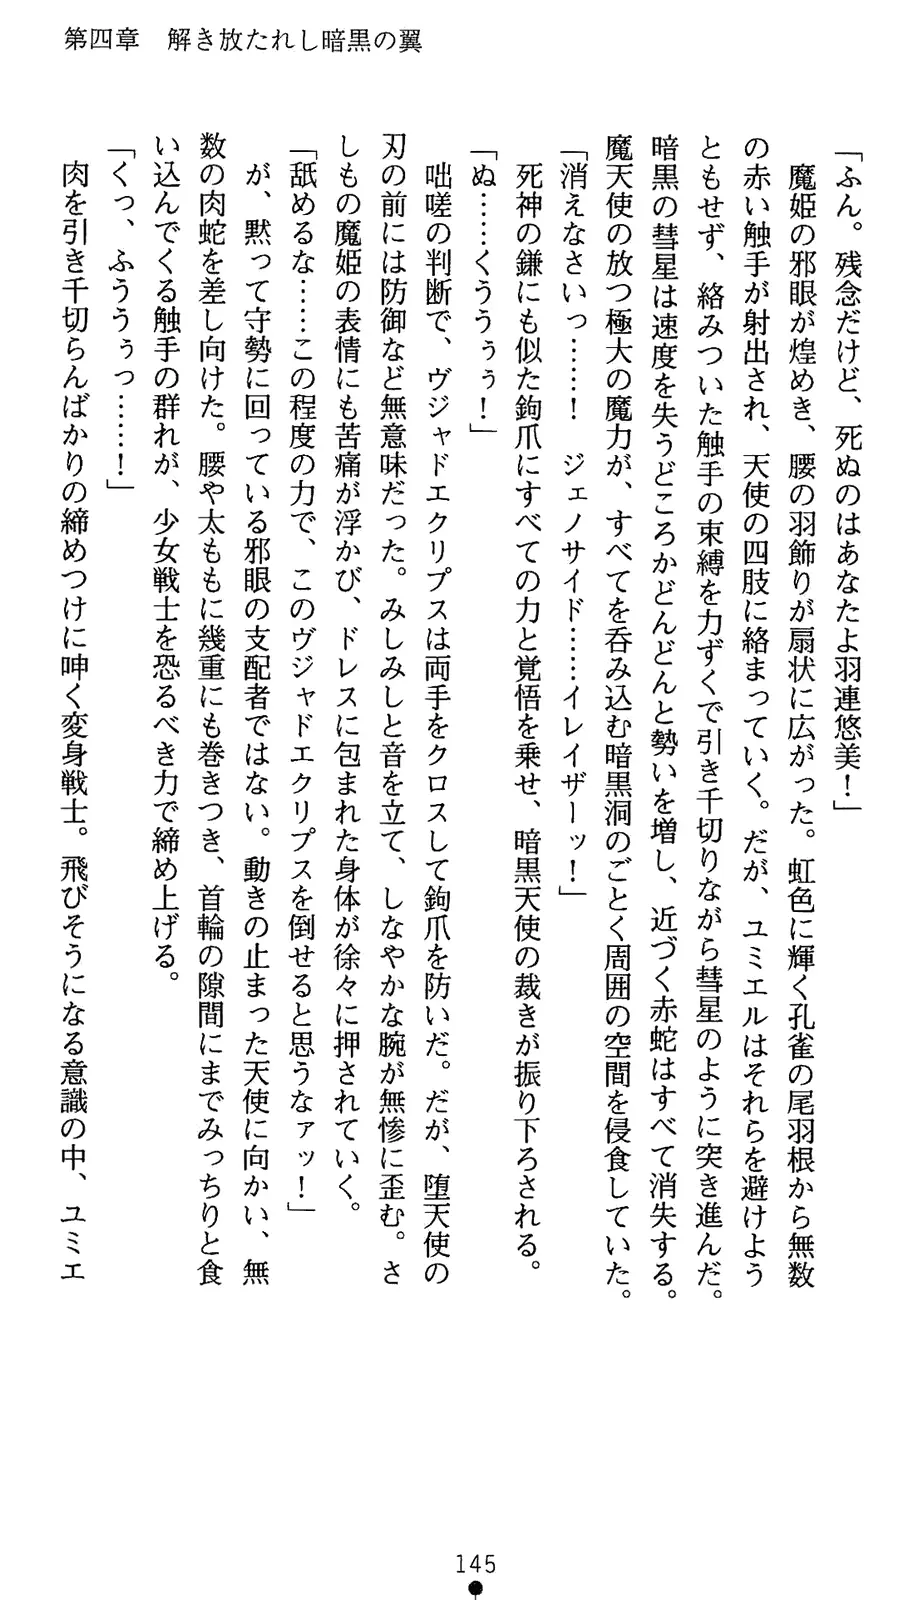 第四章　解き放たれし暗黒の翼
「ふん。残念だけど、死ぬのはあなたよ羽連悠美！」
　魔姫の邪眼が煌めき、腰の羽飾りが扇状に広がった。虹色に輝く孔雀の尾羽根から無数
の赤い触手が射出され、天使の四肢に絡まっていく。だが、ユミエルはそれらを避けよう
ともせず、絡みついた触手の束縛を力ずくで引き千切りながら彗星のように突き進んだ。
暗黒の彗星は速度を失うどころかどんどんと勢いを増し、近づく赤蛇はすべて消失する。
魔天使の放つ極大の魔力が、すべてを呑み込む暗黒洞のごとく周囲の空間を侵食していた。
「消えなさいっ……！　ジェノサイド……イレイザーッ！」
　死神の鎌にも似た鉤爪にすべての力と覚悟を乗せ、暗黒天使の裁きが振り下ろされる。
「ぬ……くうぅぅ！」
　咄嗟の判断で、ヴジャドエクリプスは両手をクロスして鉤爪を防いだ。だが、堕天使の
刃の前には防御など無意味だった。みしみしと音を立て、しなやかな腕が無惨に歪む。さ
しもの魔姫の表情にも苦痛が浮かび、ドレスに包まれた身体が徐々に押されていく。
「舐めるな……この程度の力で、このヴジャドエクリプスを倒せると思うなァッ！」
　が、黙って守勢に回っている邪眼の支配者ではない。動きの止まった天使に向かい、無
数の肉蛇を差し向けた。腰や太ももに幾重にも巻きつき、首輪の隙間にまでみっちりと食
い込んでくる触手の群れが、少女戦士を恐るべき力で締め上げる。
「くっ、ふううぅっ……！」
　肉を引き千切らんばかりの締めつけに呻く変身戦士。飛びそうになる意識の中、ユミエ
145